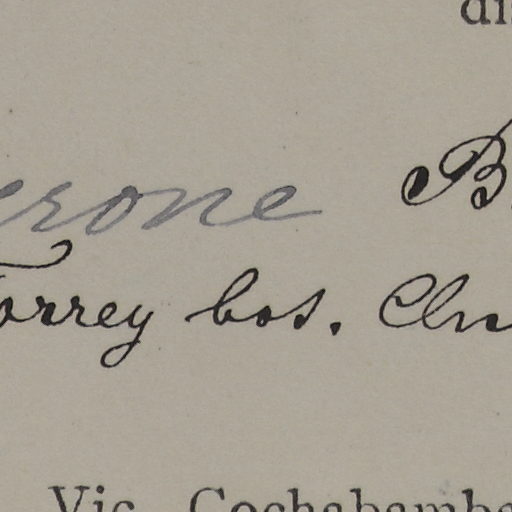 di
erone B.
Torrey bos. Clu
Vic. Cochabamba